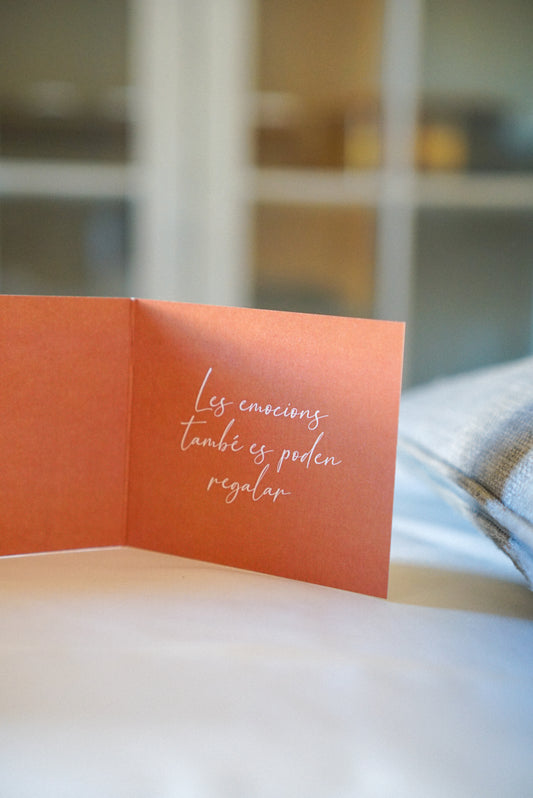 Les emocions
també es poden
regalar